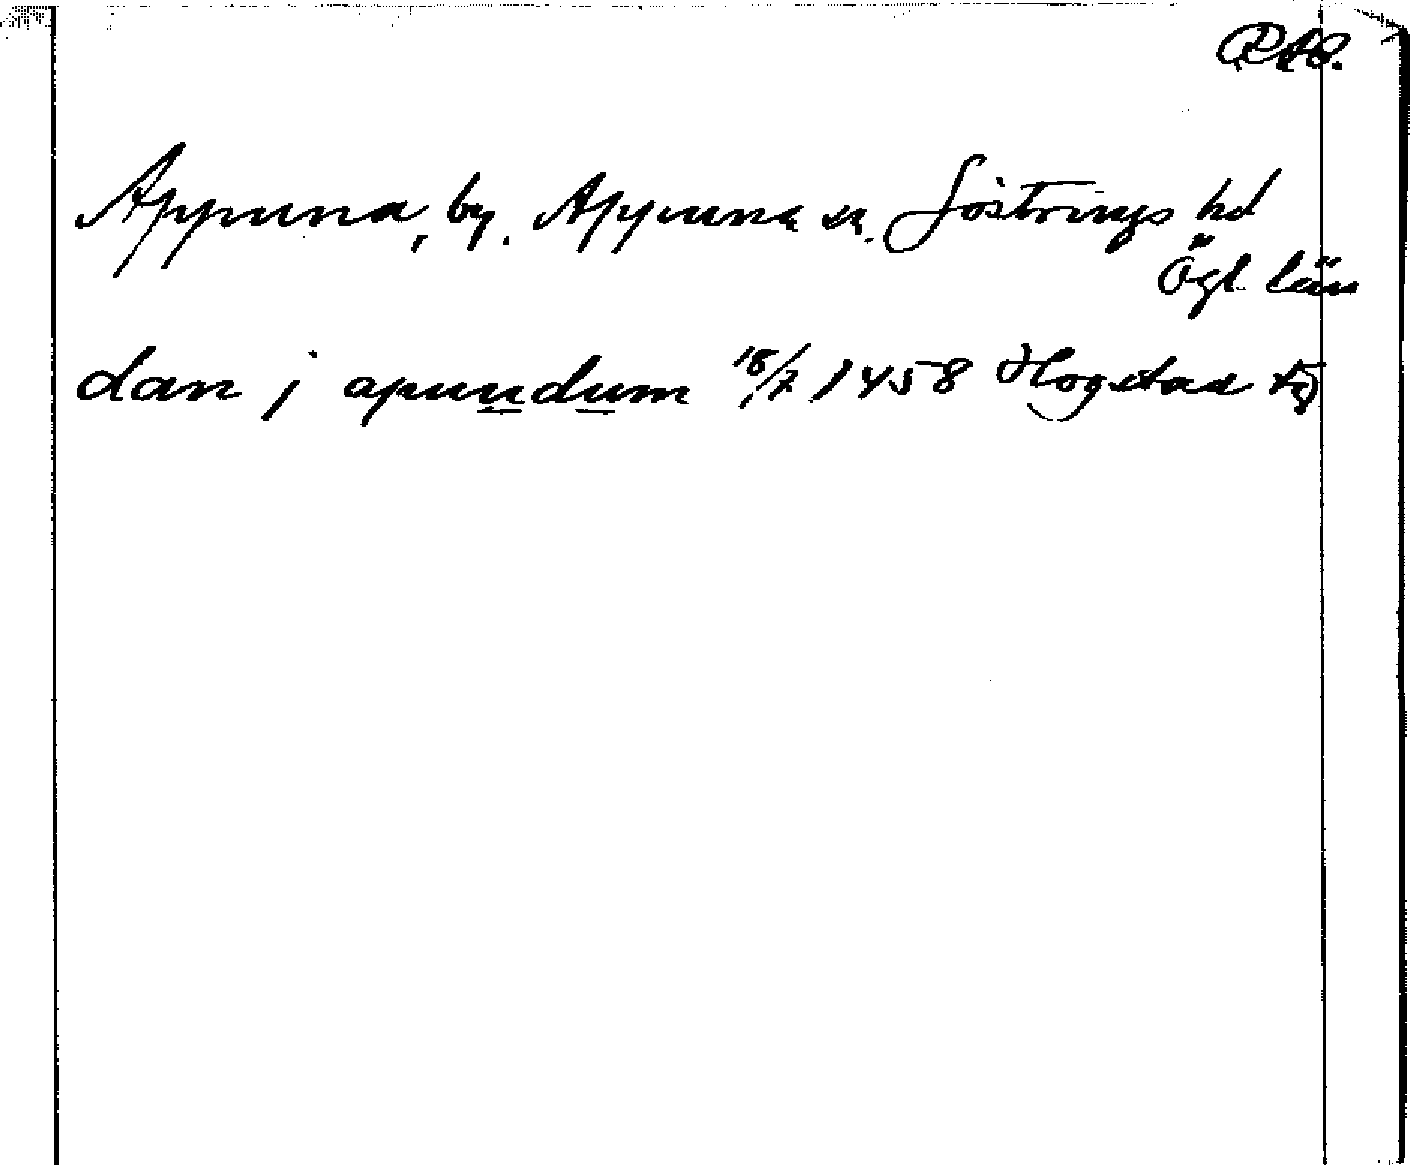 RAP.
Appuna, by. Appuna sn. Göstrings hd
Ögl län
dan j apunudum 18/7 1458 Hogstad tg